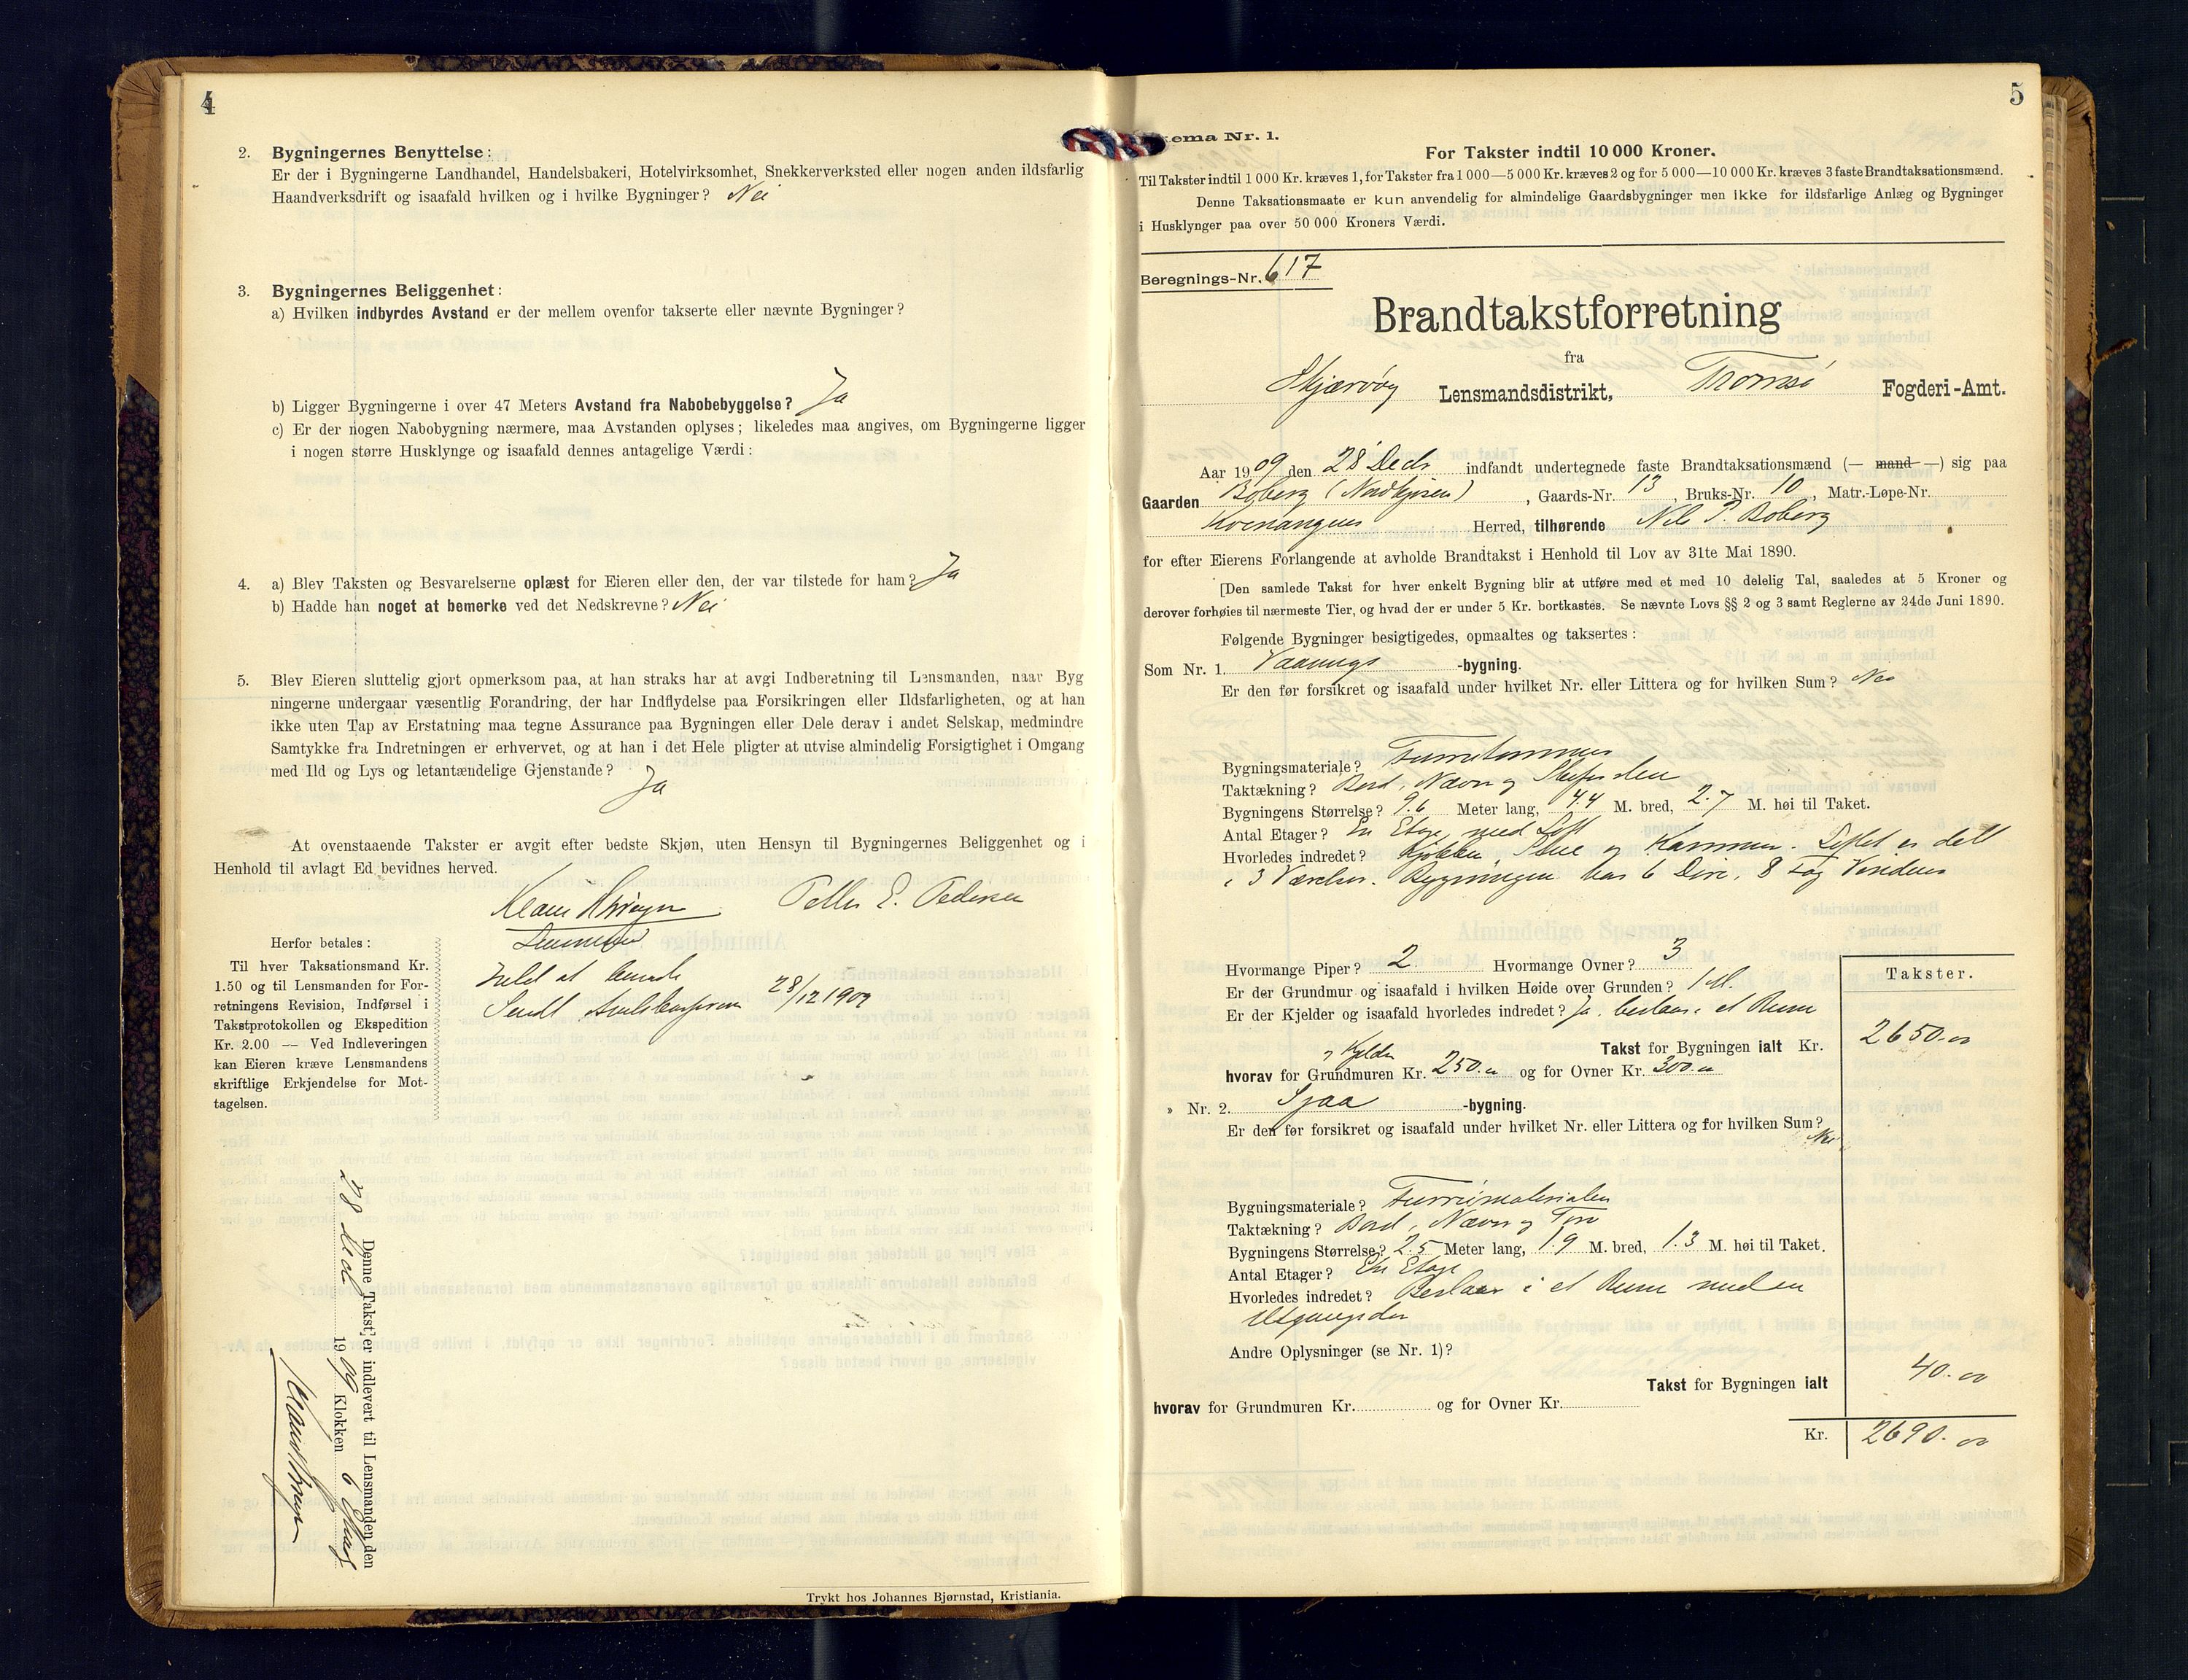 4
2. Bygningernes Benyttelse:
Er der i Bygningerne Landhandel, Handelsbakeri, Hotelvirksomhet, Snekkerverksted eller nogen anden ildsfarlig
Haandverksdrift og isaafald hvilken og i hvilke Bygninger? Nei
3. Bygningernes Beliggenhet:
a) Hvilken indbyrdes Avstand er der mellem ovenfor takserte eller nævnte Bygninger?
b) Ligger Bygningerne i over 47 Meters Avstand fra Nabobebyggelse? Ja
c) Er der nogen Nabobygning nærmere, maa Avstanden oplyses; likeledes maa angives, om Bygningerne ligger
i nogen større Husklynge og isaafald dennes antagelige Værdi:
4. a) Blev Taksten og Besvarelserne oplæst for Eieren eller den, der var tilstede for ham? Ja
b) Hadde han noget at bemerke ved det Nedskrevne? Nei
5. Blev Eieren sluttelig gjort opmerksom paa, at han straks har at avgi Indberetning til Lensmanden, naar Byg
ningerne undergaar væsentlig Forandring, der har Indflydelse paa Forsikringen eller Ildsfarligheten, og at han
ikke uten Tap av Erstatning maa tegne Assurance paa Bygningen eller Dele derav i andet Selskap, medmindre
Samtykke fra Indretningen er erhvervet, og at han i det Hele pligter at utvise almindelig Forsigtighet i Omgang
med Ild og Lys og letantændelige Gjenstande? Ja
At ovenstaaende Takster er avgit efter bedste Skjøn, uten Hensyn til Bygningernes Beliggenhet og i
Henhold til avlagt Ed bevidnes herved.
Peller E. Pedersen
Herfor betales:
Til hver Taksationsmand Kr.
1.50 og til Lensmanden for For-
retningens Revision, Indførsel i
Takstprotokollen og Ekspedition
Kr. 2.00 — Ved Indleveringen
kan Eieren kræve Lensmandens
skriftlige Erkjendelse for Mot-
tagelsen.
28/12 1909
Denne Takst er indlevert til Lensmanden den
28 Decb 1909 Klokken 6
Trykt hos Johannes Bjørnstad, Kristiania.
5
ema Nr. 1.
For Takster indtil 10 000 Kroner.
Til Takster indtil 1 000 Kr. kræves 1, for Takster fra 1 000—5 000 Kr. kræves 2 og for 5 000—10 000 Kr. kræves 3 faste Brandtaksationsmænd.
Denne Taksationsmaate er kun anvendelig for almindelige Gaardsbygninger men ikke for ildsfarlige Anlæg og Bygninger
i Husklynger paa over 50 000 Kroners Værdi.
Beregnings-Nr. 617
Brandtakstforretning
fra
Skjærvøy Lensmandsdistrikt, Tromsø Fogderi-Amt.
Aar 1909 den 28 Decb indfandt undertegnede faste Brandtaksationsmænd (— mand —) sig paa
Gaarden Boberg (Nordkjosen), Gaards-Nr. 13, Bruks-Nr. 10, Matr.-Løpe-Nr.
Kvenangens Herred, tilhørende Nils P. Boberg
for efter Eierens Forlangende at avholde Brandtakst i Henhold til Lov av 31te Mai 1890.
[Den samlede Takst for hver enkelt Bygning blir at utføre med et med 10 delelig Tal, saaledes at 5 Kroner og
derover forhøies til nærmeste Tier, og hvad der er under 5 Kr. bortkastes. Se nævnte Lovs §§ 2 og 3 samt Reglerne av 24de Juni 1890.
Følgende Bygninger besigtigedes, opmaaltes og taksertes:
Som Nr. 1. Vaanings -bygning.
Er den før forsikret og isaafald under hvilket Nr. eller Littera og for hvilken Sum? Nei
Bygningsmateriale? Furutømmer
Taktækning? Bord, Næver og
Bygningens Størrelse? 9.6 Meter lang, 4.4 M. bred, 2.7 M. høi til Taket.
Antal Etager? En Etage med Loft
Hvorledes indredet? Kjøkken, Stue og Kammer. Loftet er delt
i 3 Værelser. Bygningen har 6 Døre, 8 Fag Vinduer
Hvormange Piper? 2 Hvormange Ovner? 3
Er der Grundmur og isaafald i hvilken Høide over Grunden? 1 M.
Er der Kjelder og isaafald hvorledes indredet? Ja, bestaar i et Rum
Takster.
Takst for Bygningen ialt Kr. 2650.00
og Kjelder
hvorav for Grundmuren Kr. 250.00 og for Ovner Kr. 300.00
» Nr. 2. Sjaa -bygning.
Er den før forsikret og isaafald under hvilket Nr. eller Littera og for hvilken Sum?
Nei
Bygningsmateriale? Furrematerialer
Taktækning? Bord, Næver og Torv
Bygningens Størrelse? 2.5 Meter lang, 1.9 M. bred, 1.3 M. høi til Taket.
Antal Etager? En Etage
Hvorledes indredet? Bestaar i et Rum med en
Utgangsdør
Andre Oplysninger (se Nr. 1)?
Takst for Bygningen ialt 40.00
hvorav for Grundmuren Kr. og for Ovner Kr.
Kr. 2690.00